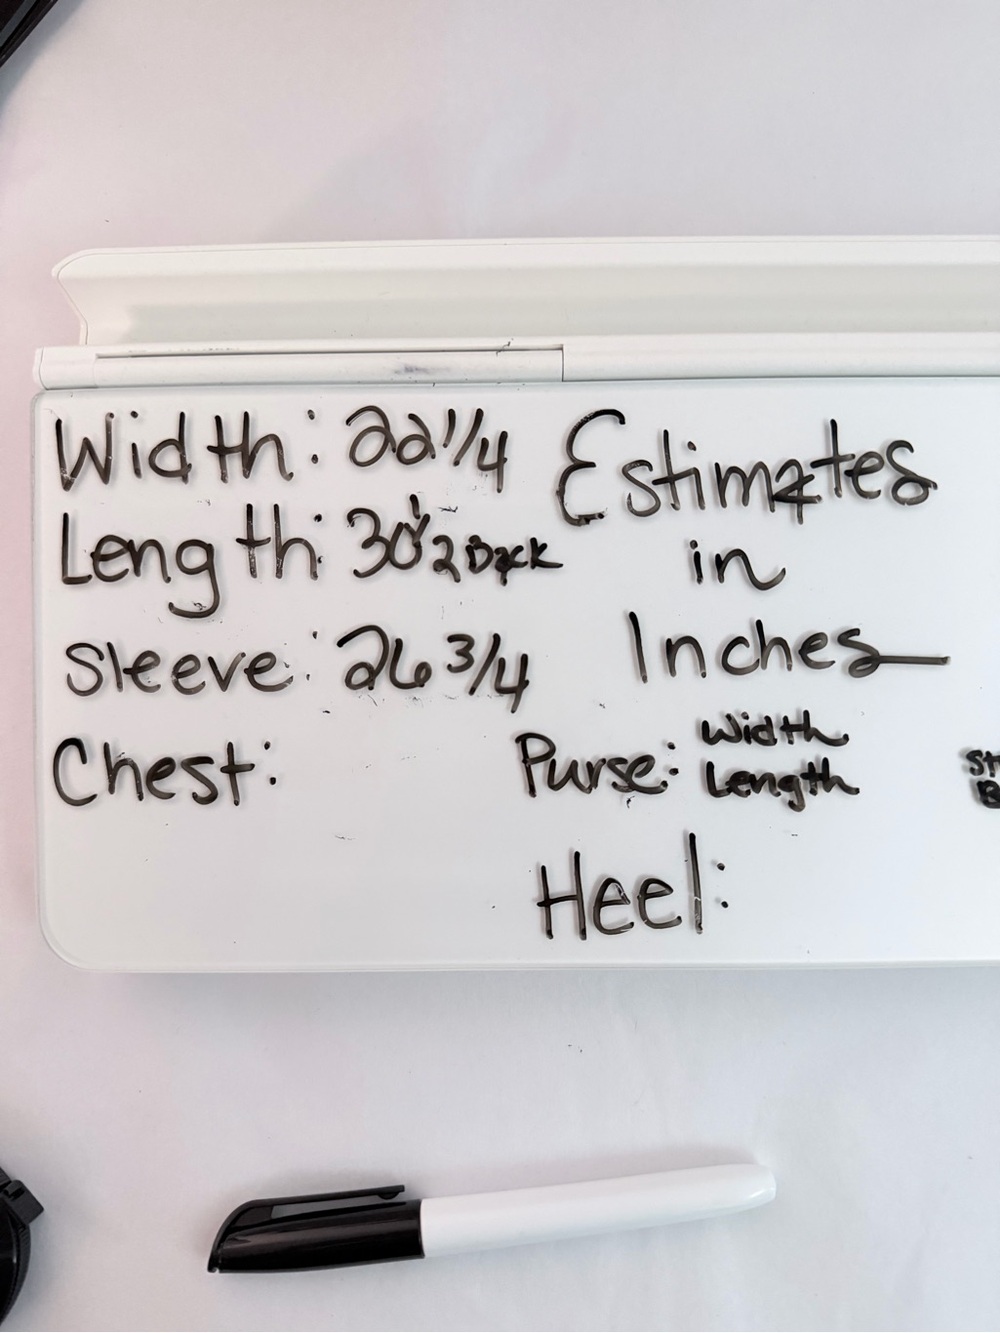 Width: 22 1/4
Length: 30 1/2 Back
Sleeve: 26 3/4
Chest:
Estimates
in
Inches
Purse: Width
Length
Heel: